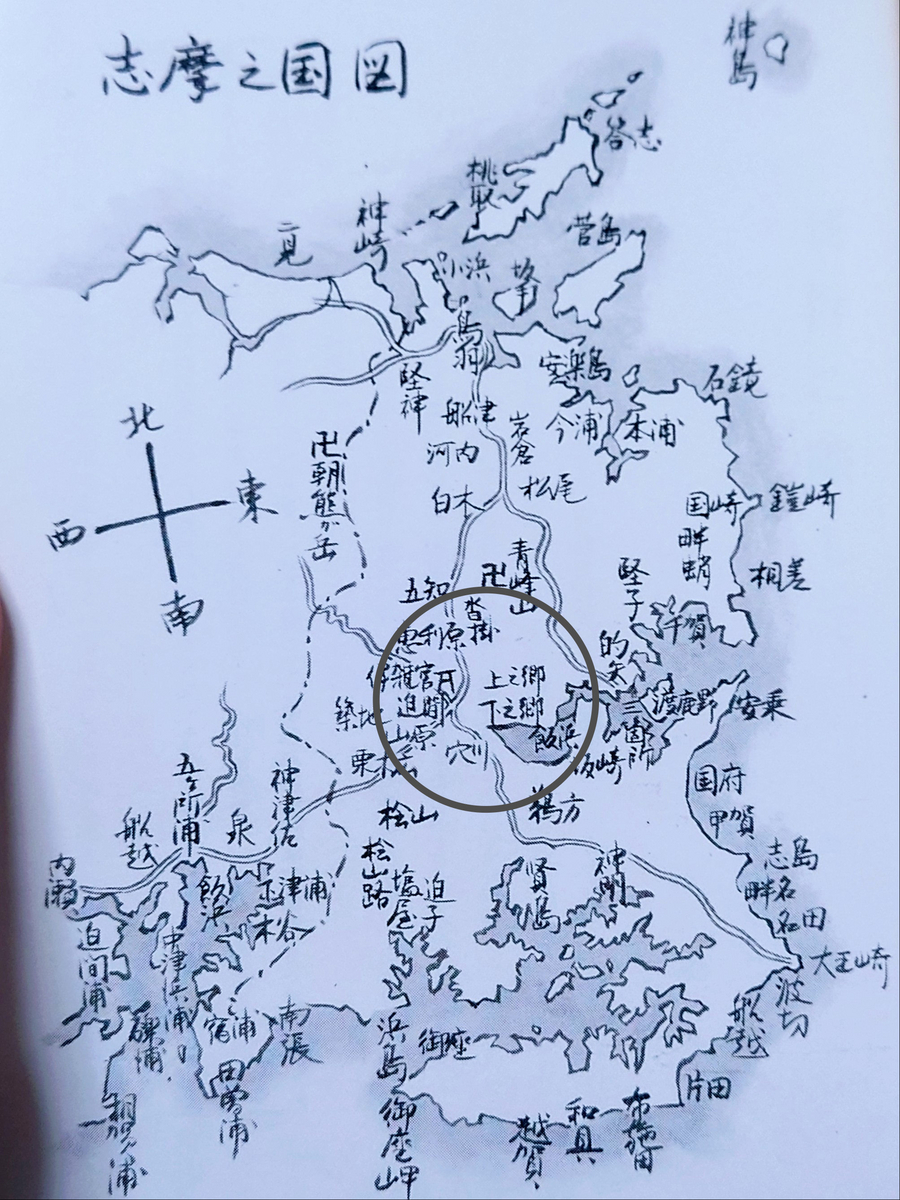 志摩之国図
神島
答志
桃取
菅島
神崎
二見
小浜
坂手
鳥羽
安楽島
石鏡
堅神
船津
岩倉
今浦
本浦
河内
白木
松尾
国崎
鎧崎
畔蛸
相差
北
東
西
南
卍朝熊ヶ岳
卍青峰山
五知
沓掛
堅子
千賀
的矢
恵利原
伊雑宮
上之郷
下之郷
迫間
築地
山原
飯浜
穴川
栗木
三箇所
渡鹿野
安乗
坂崎
国府
甲賀
鵜方
桧山
神津佐
五ヶ所浦
泉
船越
内瀬
飯浜
下津浦
木谷
桧山路
塩屋
迫子
賢島
神明
志島
畔名
名田
大王崎
波切
船越
片田
迫間浦
中津浜浦
礫浦
宿浦
田曽浦
南張
浜島
御座
御座岬
相賀浦
越賀
和具
布施田